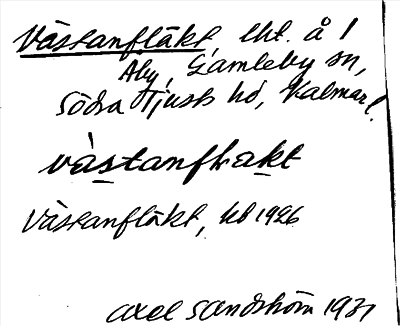 Västanfläkt, lht. å 1
Åby, Gamleby sn,
Södra Tjusts hd, Kalmar l.
västanfläkt
Västanfläkt, hd 1926
Axel Sandström 1931